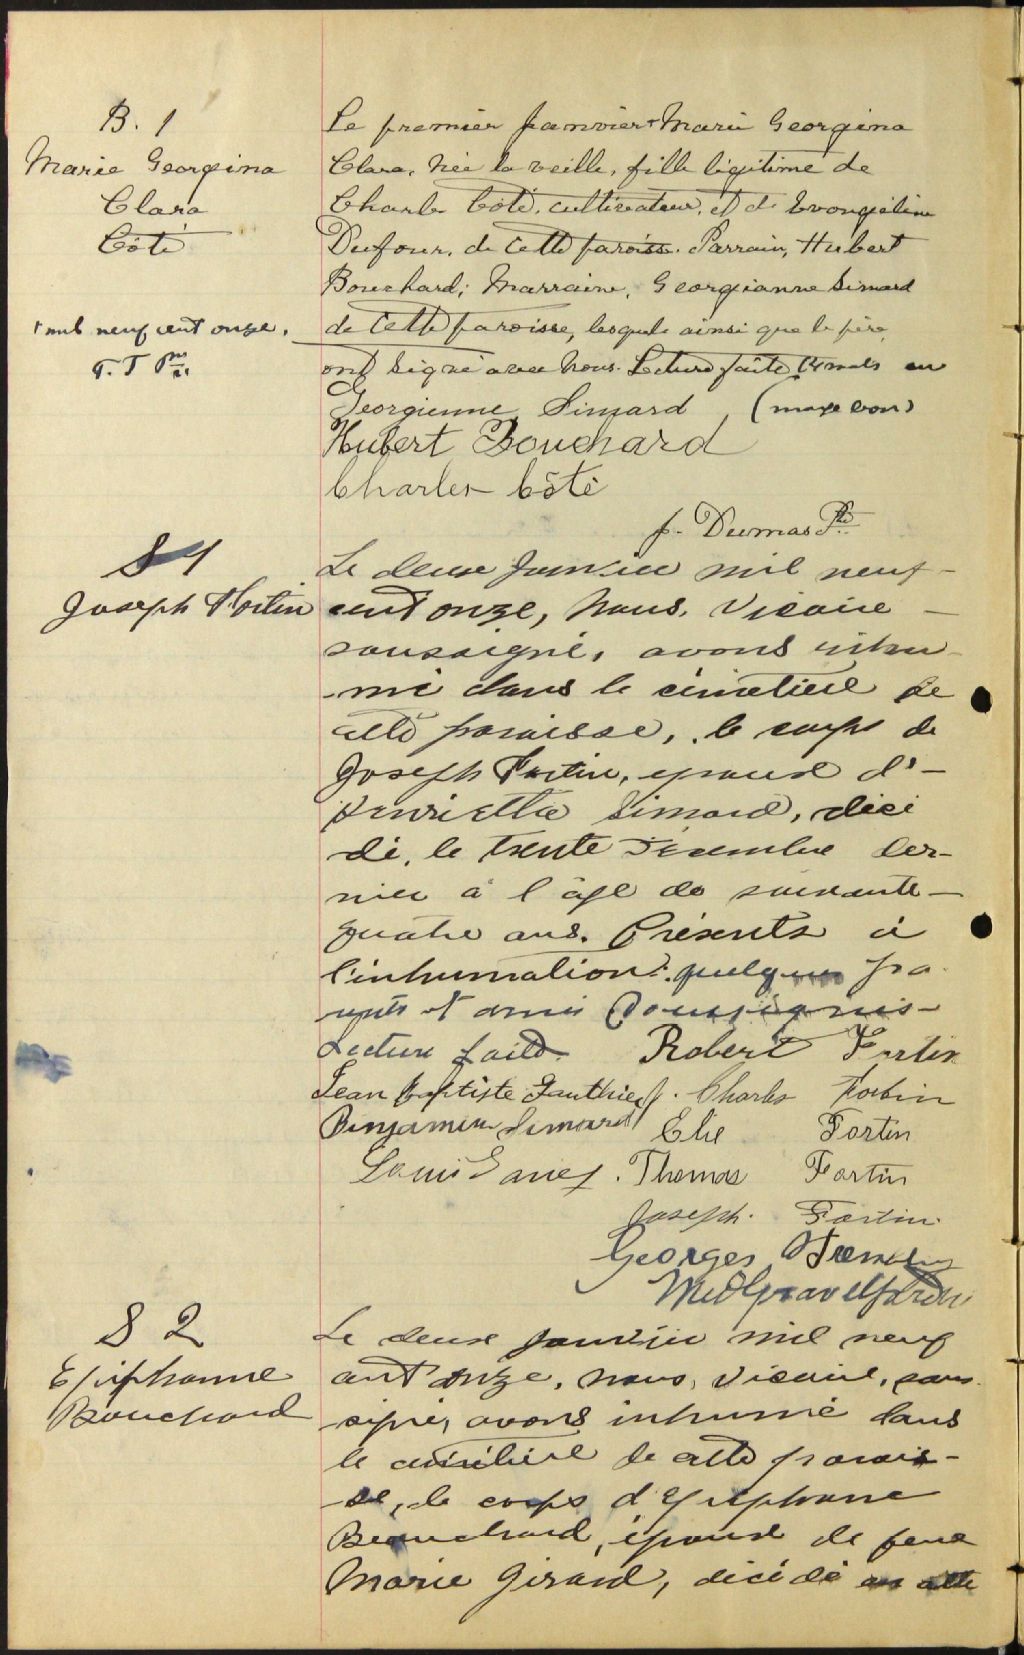 B. 1
Marie Georgina
Clara
Côté
+ mil neuf cent onze.
Le premier Janvier + Marie Georgina
Clara, née la veille, fille légitime de
Charles Côté, cultivateur, et de Evangéline
Dufour, de cette paroisse. Parrain, Hubert
Bouchard; Marraine, Georgianne Simard
de cette paroisse, lesquels ainsi que le père,
ont signé avec nous. Lecture faite.
Georgienne Simard
Hubert Bouchard
Charles Côté
J. Dumas Ptre
S 1
Joseph Fortin
Le deux Janvier mil neuf
cent onze, nous, Vicaire
soussigné, avons inhu-
-mé dans le cimetière de
cette paroisse, le corps de
Joseph Fortin, epoux d'
Henriette Simard, décé
dé, le trente Décembre der-
nier à l'âge de soixante-
quatre ans. Présents à
l'inhumation: quelques pa
rents et amis soussignés
Lecture faite. Robert Fortin
Jean Baptiste Gauthier Charles Fortin
Benjamin Simard Elie Fortin
Louis Thomas Fortin
Joseph. Fortin.
Georges Tremblay
S 2
Epiphanne
Bouchard
Le deux janvier mil neuf
cent onze, nous, Vicaire, sous-
signé, avons inhumé dans
le cimetière de cette parois-
-se, le corps d'Epiphane
Bouchard, époux de feue
Marie Girard, décédé en cette